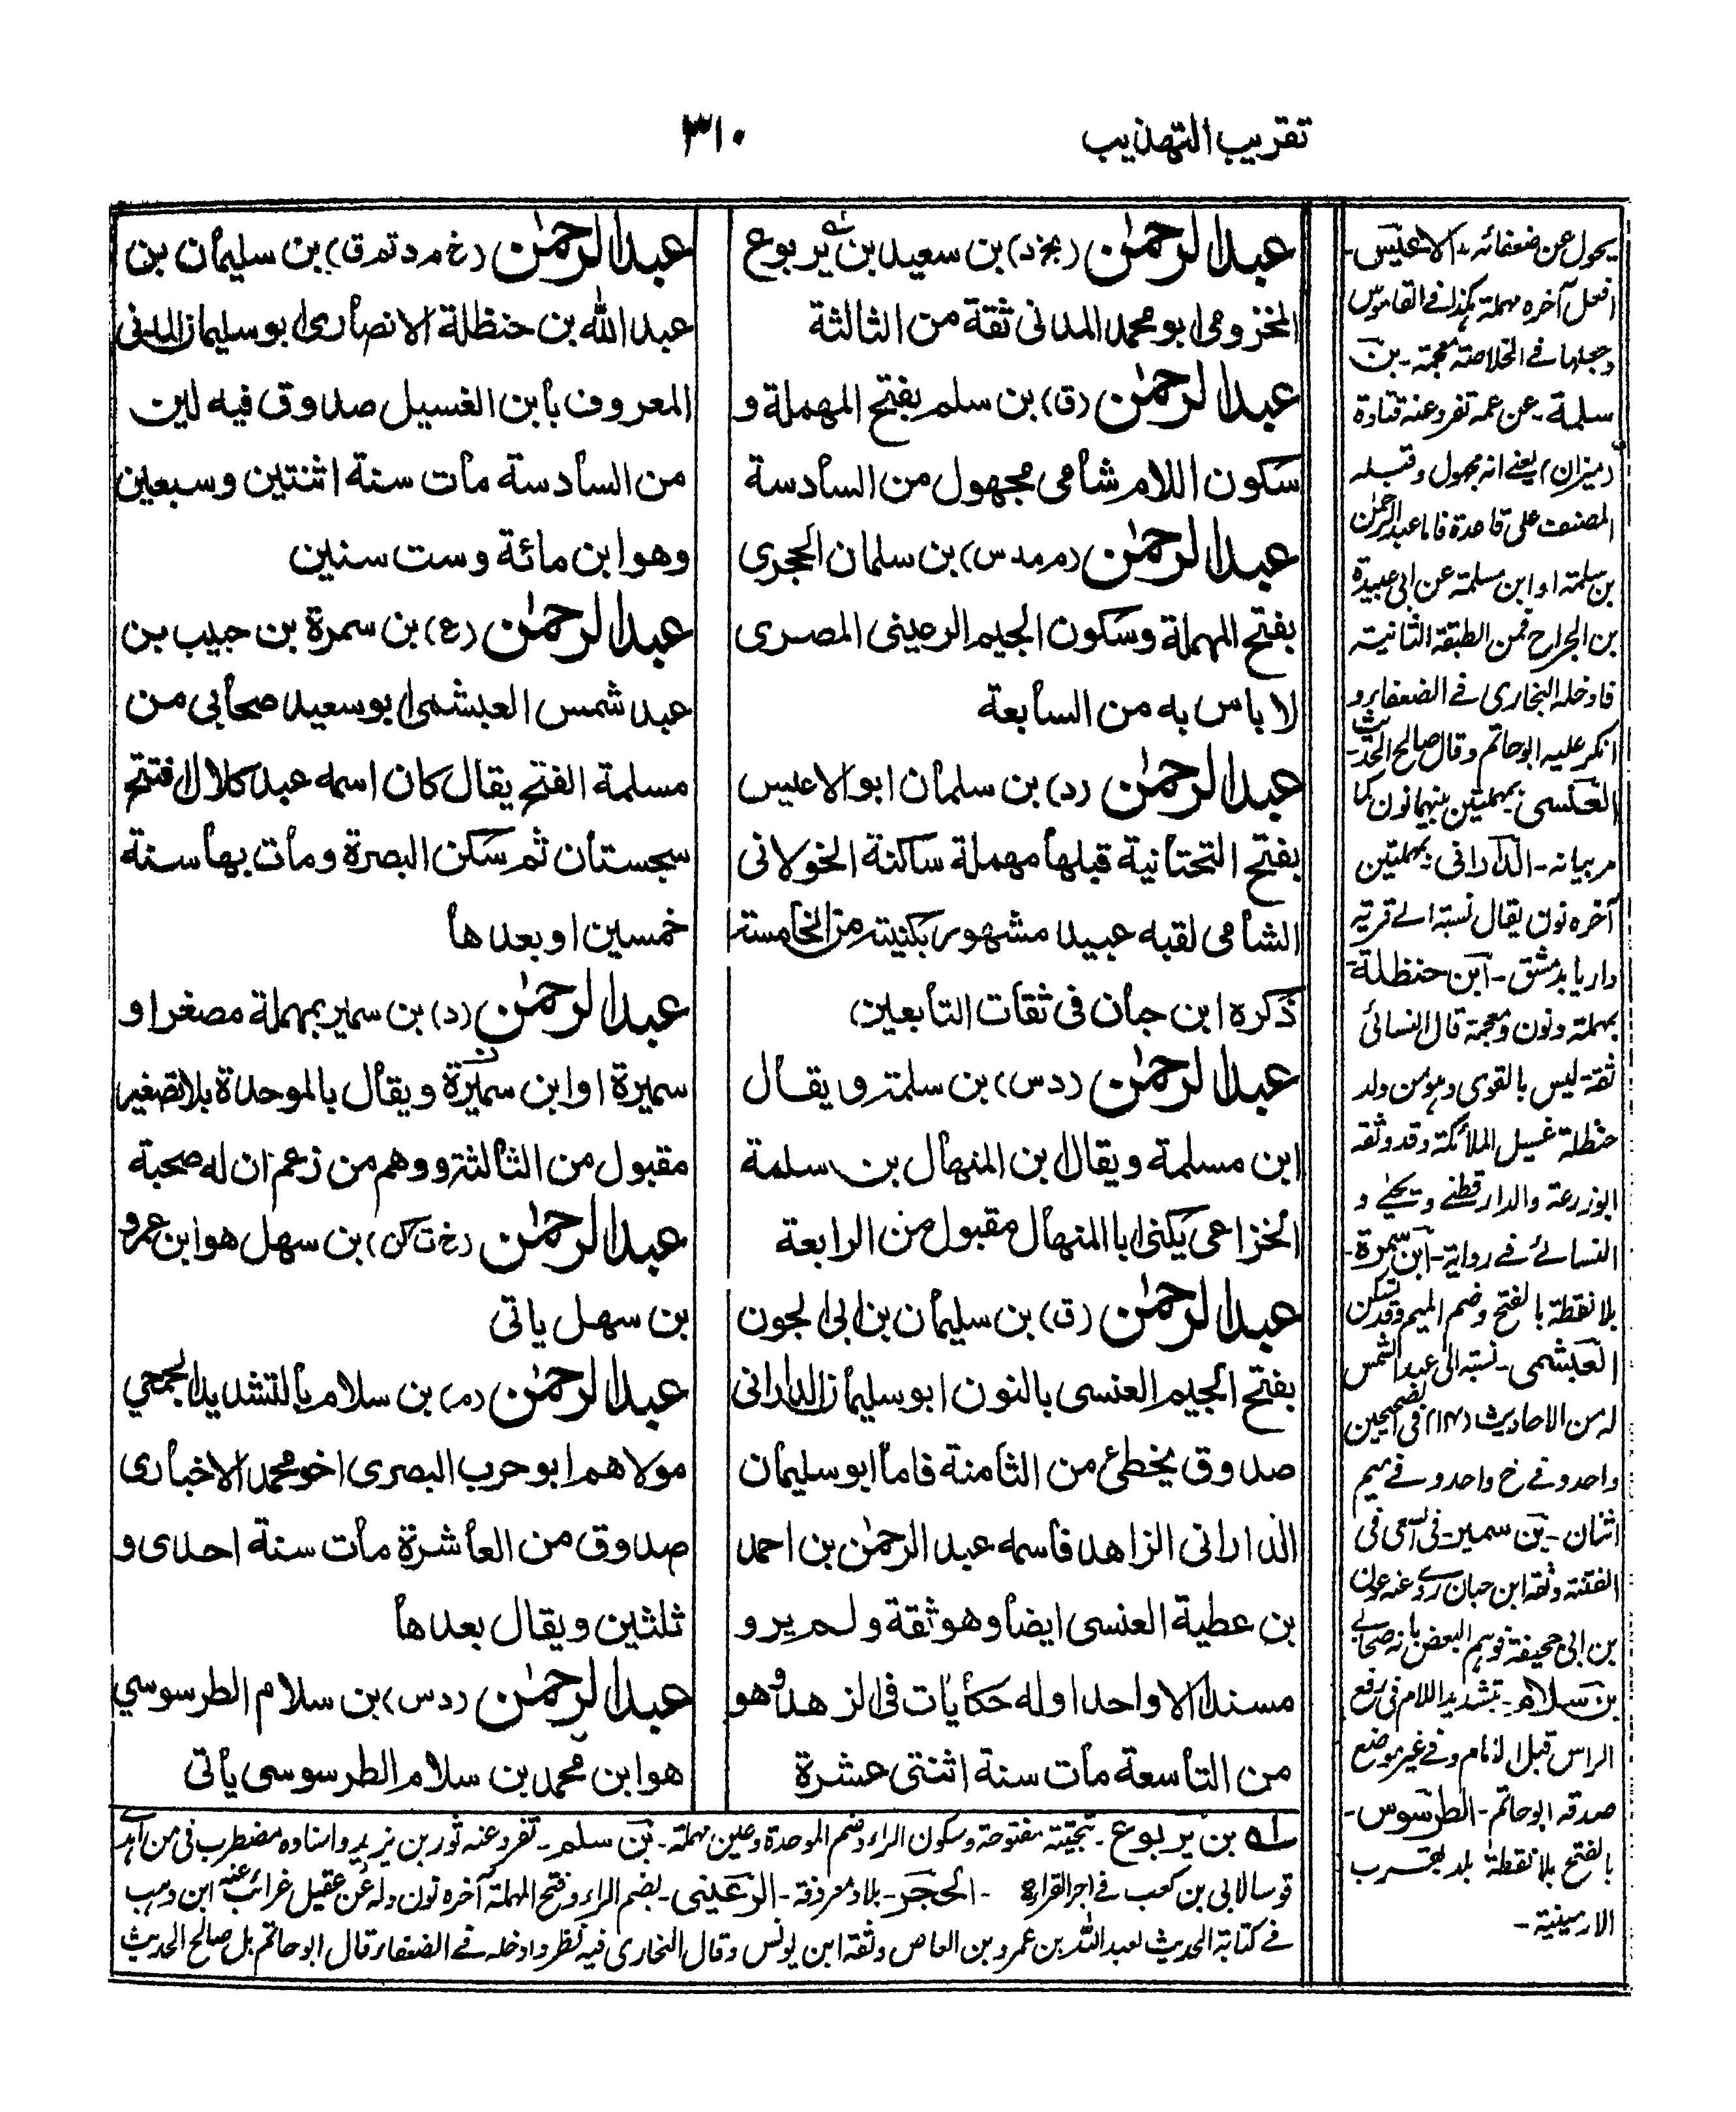 تقريب التهذيب
٣١٠
عبد الرحمٰن (بخ د) بن سعيد بن يربوع
المخزومي ابو محمد المدنى ثقة من الثالثة
عبد الرحمٰن (ق) بن سلم بفتح المهملة و
سكون اللام شامى مجهول من السادسة
عبد الرحمٰن (م مد س) بن سلمان الحجري
بفتح المهملة وسكون الجيم الرعينى المصرى
لا باس به من السابعة
عبد الرحمٰن (د) بن سلمان ابو الاعيس
بفتح التحتانية قبلها مهملة ساكنة الخولانى
الشامى لقبه عبيد مشهور بكنيته من الخامسة
ذكره ابن حبان فى ثقات التابعين
عبد الرحمٰن (د س) بن سلمة ويقال
ابن مسلمة ويقال ابن المنهال بن سلمة
الخزاعى يكنى ابا المنهال مقبول من الرابعة
عبد الرحمٰن (ق) بن سليمان بن ابى الجون
بفتح الجيم العنسى بالنون ابو سليمان الدارانى
صدوق يخطئ من الثامنة فاما ابو سليمان
الدارانى الزاهد فاسمه عبد الرحمٰن بن احمد
بن عطية العنسى ايضا وهو ثقة ولم يرو
مسندا الا واحدا وله حكايات فى الزهد وهو
من التاسعة مات سنة اثنتى عشرة
عبد الرحمٰن (خ م د تم ق) بن سليمان بن
عبد الله بن حنظلة الانصارى ابو سليمان المدنى
المعروف بابن الغسيل صدوق فيه لين
من السادسة مات سنة اثنتين وسبعين
وهو ابن مائة وست سنين
عبد الرحمٰن (ع) بن سمرة بن حبيب بن
عبد شمس العبشمى ابو سعيد صحابى من
مسلمة الفتح يقال كان اسمه عبد كلال افتتح
سجستان ثم سكن البصرة ومات بها سنة
خمسين او بعدها
عبد الرحمٰن (د) بن سمير بمهملة مصغرا و
سميرة او ابن سميرة ويقال بالموحدة بلا تصغير
مقبول من الثالثة ووهم من زعم ان له صحبة
عبد الرحمٰن (خ ت كن) بن سهل هو ابن عمرو
بن سهل ياتى
عبد الرحمٰن (م) بن سلام بالتشديد الجمحي
مولاهم ابو حرب البصرى اخو محمد الاخبارى
صدوق من العاشرة مات سنة احدى و
ثلثين ويقال بعدها
عبد الرحمٰن (د س) بن سلام الطرسوسي
هو ابن محمد بن سلام الطرسوسى ياتى
يحول عن ضعفائه - الاعيس -
افعل آخره مهملة كذا فى القاموس
وجعلها فى الخلاصة معجمة - بن
سلمة - عن عمه تفرد عنه قتادة
(ميزان) يعنى انه مجهول وقبله
المصنف على قاعدة فاما عبد الرحمٰن
بن سلمة او ابن مسلمة عن ابى عبيدة
بن الجراح فمن الطبقة الثانية
فادخله البخارى فى الضعفاء و
انكر عليه ابو حاتم وقال صالح الحديث -
العنسى بمهملتين بينهما نون كما
مر بيانه - الدارانى بمهملتين
آخره نون يقال نسبة الى قرية
داريا بدمشق - ابن حنظلة -
بمهملة ونون ومعجمة قال النسائى
ثقة ليس بالقوى وهو من ولد
حنظلة غسيل الملائكة وقد وثقه
ابو زرعة والدارقطنى ويحيى و
النسائى فى رواية - ابن سمرة -
بلا نقطة بالفتح وضم الميم وقد تسكن
العبشمى - نسبة الى عبد الشمس
له من الاحاديث (١٤) فى الصحيحين
واحد وفى خ واحد وفى ميم
اثنان - بن سمير - فى السعى فى
الفتنة وثقه ابن حبان روى عنه عون
بن ابى جحيفة فوهم البعض بانه صحابى
بن سلام - بتشديد اللام فى رفع
الراس قبل الامام وفى غير موضع
صدقه ابو حاتم - الطرسوس -
بالفتح بلا نقطة بلد بقرب
الارمينية -
له بن يربوع - بتحتية مفتوحة وسكون الراء وضم الموحدة وعين مهملة - بن سلم - تفرد عنه ثور بن يزيد واسناده مضطرب فى من اهدى
قوسا لابى بن كعب فى اجر القراءة - الحجر - بلاد معروفة - الرعينى - بضم الراء وفتح المهملة آخره نون وله عن عقيل غرائب عنه ابن وهب
فى كتابة الحديث لعبد الله بن عمرو بن العاص وثقه ابن يونس وقال البخارى فيه نظر وادخله فى الضعفاء قال ابو حاتم بل صالح الحديث